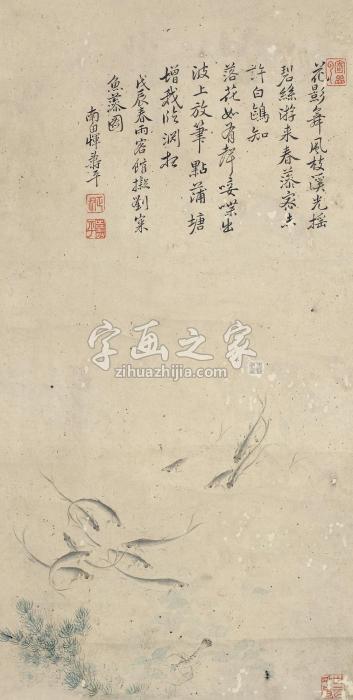 花影舞風枝溪光搖
碧絲游來春藻密未
許白鷗知
落花如有聲唼喋出
波上放筆點蒲塘
增我濠濮想
戊辰春雨客館擬劉寀
魚藻圖
南田惲壽平
字画之家
zihuazhijia.com